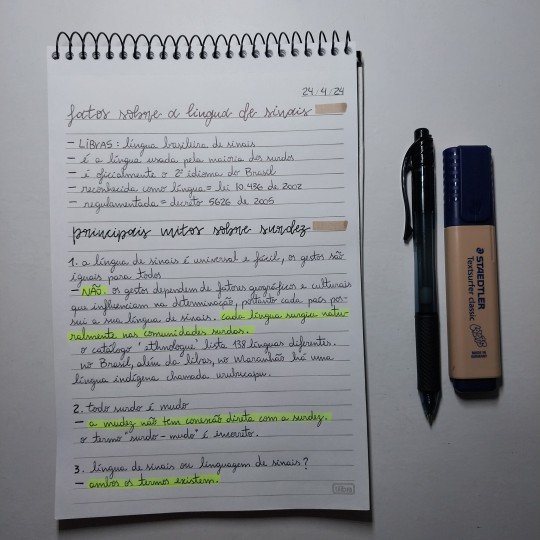 24/4/24
fatos sobre a língua de sinais
- LIBRAS: língua brasileira de sinais
- é a língua usada pela maioria dos surdos
- é oficialmente o 2º idioma do Brasil
- reconhecida como língua = lei 10.436 de 2002
- regulamentada = decreto 5626 de 2005
principais mitos sobre surdez
1. a língua de sinais é universal e fácil, os gestos são
iguais para todos
- NÃO. os gestos dependem de fatores geográficos e culturais
que influenciam na determinação, portanto cada país pos-
sui a sua língua de sinais. cada língua surgiu natu-
ralmente nas comunidades surdas.
o catálogo "ethnologue" lista 138 línguas diferentes.
no Brasil, além da libras, no Maranhão há uma
língua indígena chamada urubucapu.
2. todo surdo é mudo
- a mudez não tem conexão direta com a surdez.
o termo "surdo-mudo" é incorreto.
3. língua de sinais ou linguagem de sinais?
- ambos os termos existem.
tilibra
STAEDTLER
Textsurfer classic
MADE IN GERMANY